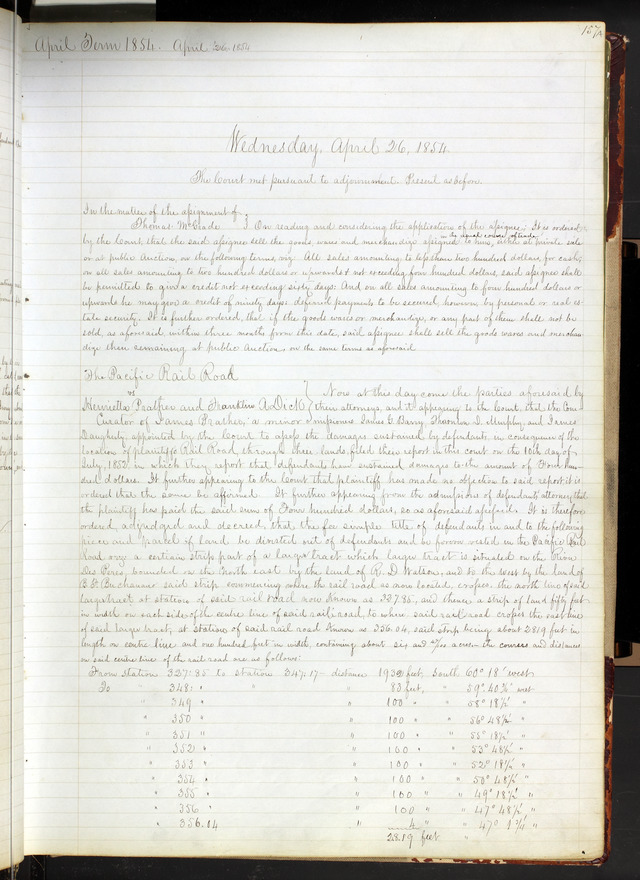 157
April Term 1854. April 26. 1854
Wednesday, April 26, 1854.
The Court met pursuant to adjournment. Present as before.
In the matter of the assignment of
Thomas McGrade } On reading and considering the application of the assignee; It is ordered
in the usual course of trade
by the Court, that the said assignee sell the goods, wares and merchandize assigned to him, either at private sale
or at public Auction, on the following terms, viz: All sales amounting to less than two hundred dollars, for cash;
on all sales amounting to two hundred dollars or upwards & not exceeding four hundred dollars, said assignee shall
be permitted to give a credit not exceeding sixty days: And on all sales amounting to four hundred dollars or
upwards he may give a credit of ninety days: deferred payments to be secured, however, by personal or real es-
tate security. It is further ordered, that if the goods wares or merchandize, or any part of them shall not be
sold, as aforesaid, within three months from this date, said assignee shall sell the goods wares and merchan-
dize then remaining at public Auction, on the same terms as aforesaid.
The Pacific Rail Road
vs
Now at this day come the parties aforesaid by
Henrietta Prather and Franklin A. Dick } their attorneys, and it appearing to the Court, that the Com-
Curator of James Prather, a minor
missioners James G. Barry, Thornton S. Murphy, and James
Daugherty, appointed by the Court to assess the damages sustained by defendants in consequence of the
location of plaintiffs Rail Road through three lands, filed their report in this court on the 10th day of
July, 1852, in which they report that defendants have sustained damages to the amount of Four hun-
dred dollars. It further appearing to the Court that plaintiff has made no objection to said report it is
ordered that the same be affirmed. It further appearing from the admissions of defendants attorney that
the plaintiff has paid the said sum of Four hundred dollars, so as aforesaid assessed. It is therefore
ordered, adjudged and decreed, that, the fee simple title of defendants in and to the following
piece and parcel of land be divested out of defendants and be forever vested in the Pacific Rail
Road viz: a certain strip part of a larger tract which larger tract is situated on the River
Des Peres, bounded on the North east by the land of R. D. Watson, and to the west by the land of
B. F. Buchanan said strip commencing where the rail road as now located, crosses the north line of said
larger tract at station of said rail road now known as 327.85, and thence a strip of land fifty feet
in width on each side of the centre line of said rail road, to where said rail road crosses the east line
of said larger tract, at station of said rail road known as 356.04, said strip being about 2819 feet in
length on centre line and one hundred feet in width containing about six and acres the courses and distances
on said centre line of the rail road are as follows:
From station 327.85 to station 347.17 distance 1932 feet, South 60° 18' west
To " 348. " " " 83 feet, " 59° 40¾' west
" 349 " " 100 " " 58° 18½' "
" 350 " " 100 " " 56° 48½' "
" 351 " " 100 " " 55° 18½' "
" 352 " " 100 " " 53° 48½' "
" 353 " " 100 " " 52° 18½' "
" 354 " " 100 " " 50° 48½' "
" 355 " " 100 " " 49° 18½' "
" 356 " " 100 " " 47° 48½' "
" 356.04 " 4 " " 47° "
2819 feet "